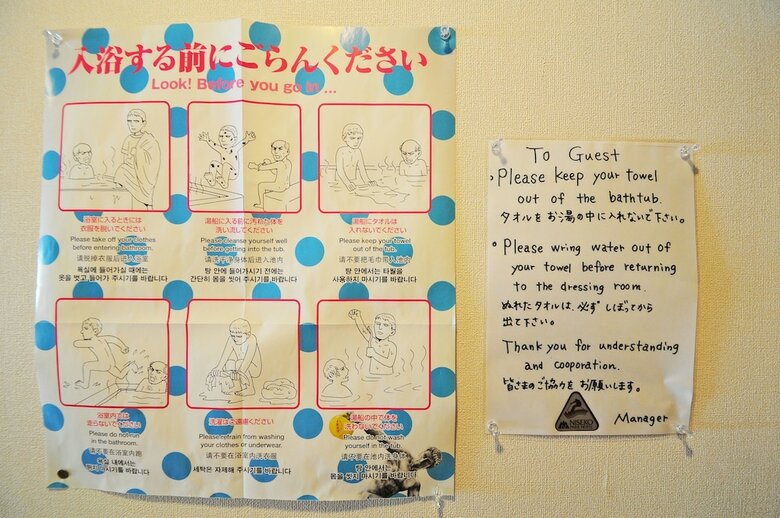 入浴する前にごらんください
Look! Before you go in ...
浴室に入るときには
衣服を脱いでください
Please take off your clothes
before entering bathroom.
请脱掉衣服后进入浴室
욕실에 들어가실 때에는
옷을 벗고 들어가 주시기를 바랍니다
湯船に入る前に汚れと体を
洗い流してください
Please cleanse yourself well
before getting into the tub.
请洗干净身体后进入池内
탕 안에 들어가시기 전에는
간단히 몸을 씻어 주시기를 바랍니다
湯船にタオルは
入れないでください
Please keep your towel
out of the tub.
请不要把毛巾带入池内
탕 안에서는 타월을
사용하지 마시기를 바랍니다
浴室内では
走らないでください
Please do not run
in the bathroom.
请不要在浴室内跑
욕실 내에서는
뛰지 마시기를 바랍니다
洗濯はご遠慮ください
Please refrain from washing
your clothes or underwear.
请不要在浴室内洗衣服
세탁은 자제해 주시기를 바랍니다
湯船の中で体を
洗わないでください
Please do not wash
yourself in the tub.
请不要在池内洗身体
탕 안에서는
몸을 씻지 마시기를 바랍니다
To Guest
・Please keep your towel
out of the bathtub.
タオルをお湯の中に入れないで下さい。
・Please wring water out of
your towel before returning
to the dressing room.
ぬれたタオルは、必ずしぼってから
出て下さい。
Thank you for understanding
and cooporation.
皆さまのご協力をお願いします。
NISEKO
Manager